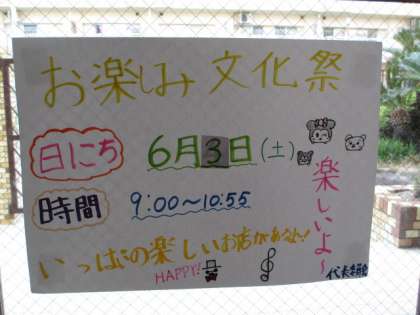 お楽しみ文化祭
日にち 6月3日(土)
時間 9:00〜10:55
楽しいよ〜
いっぱいの楽しいお店があるよ!
HAPPY!